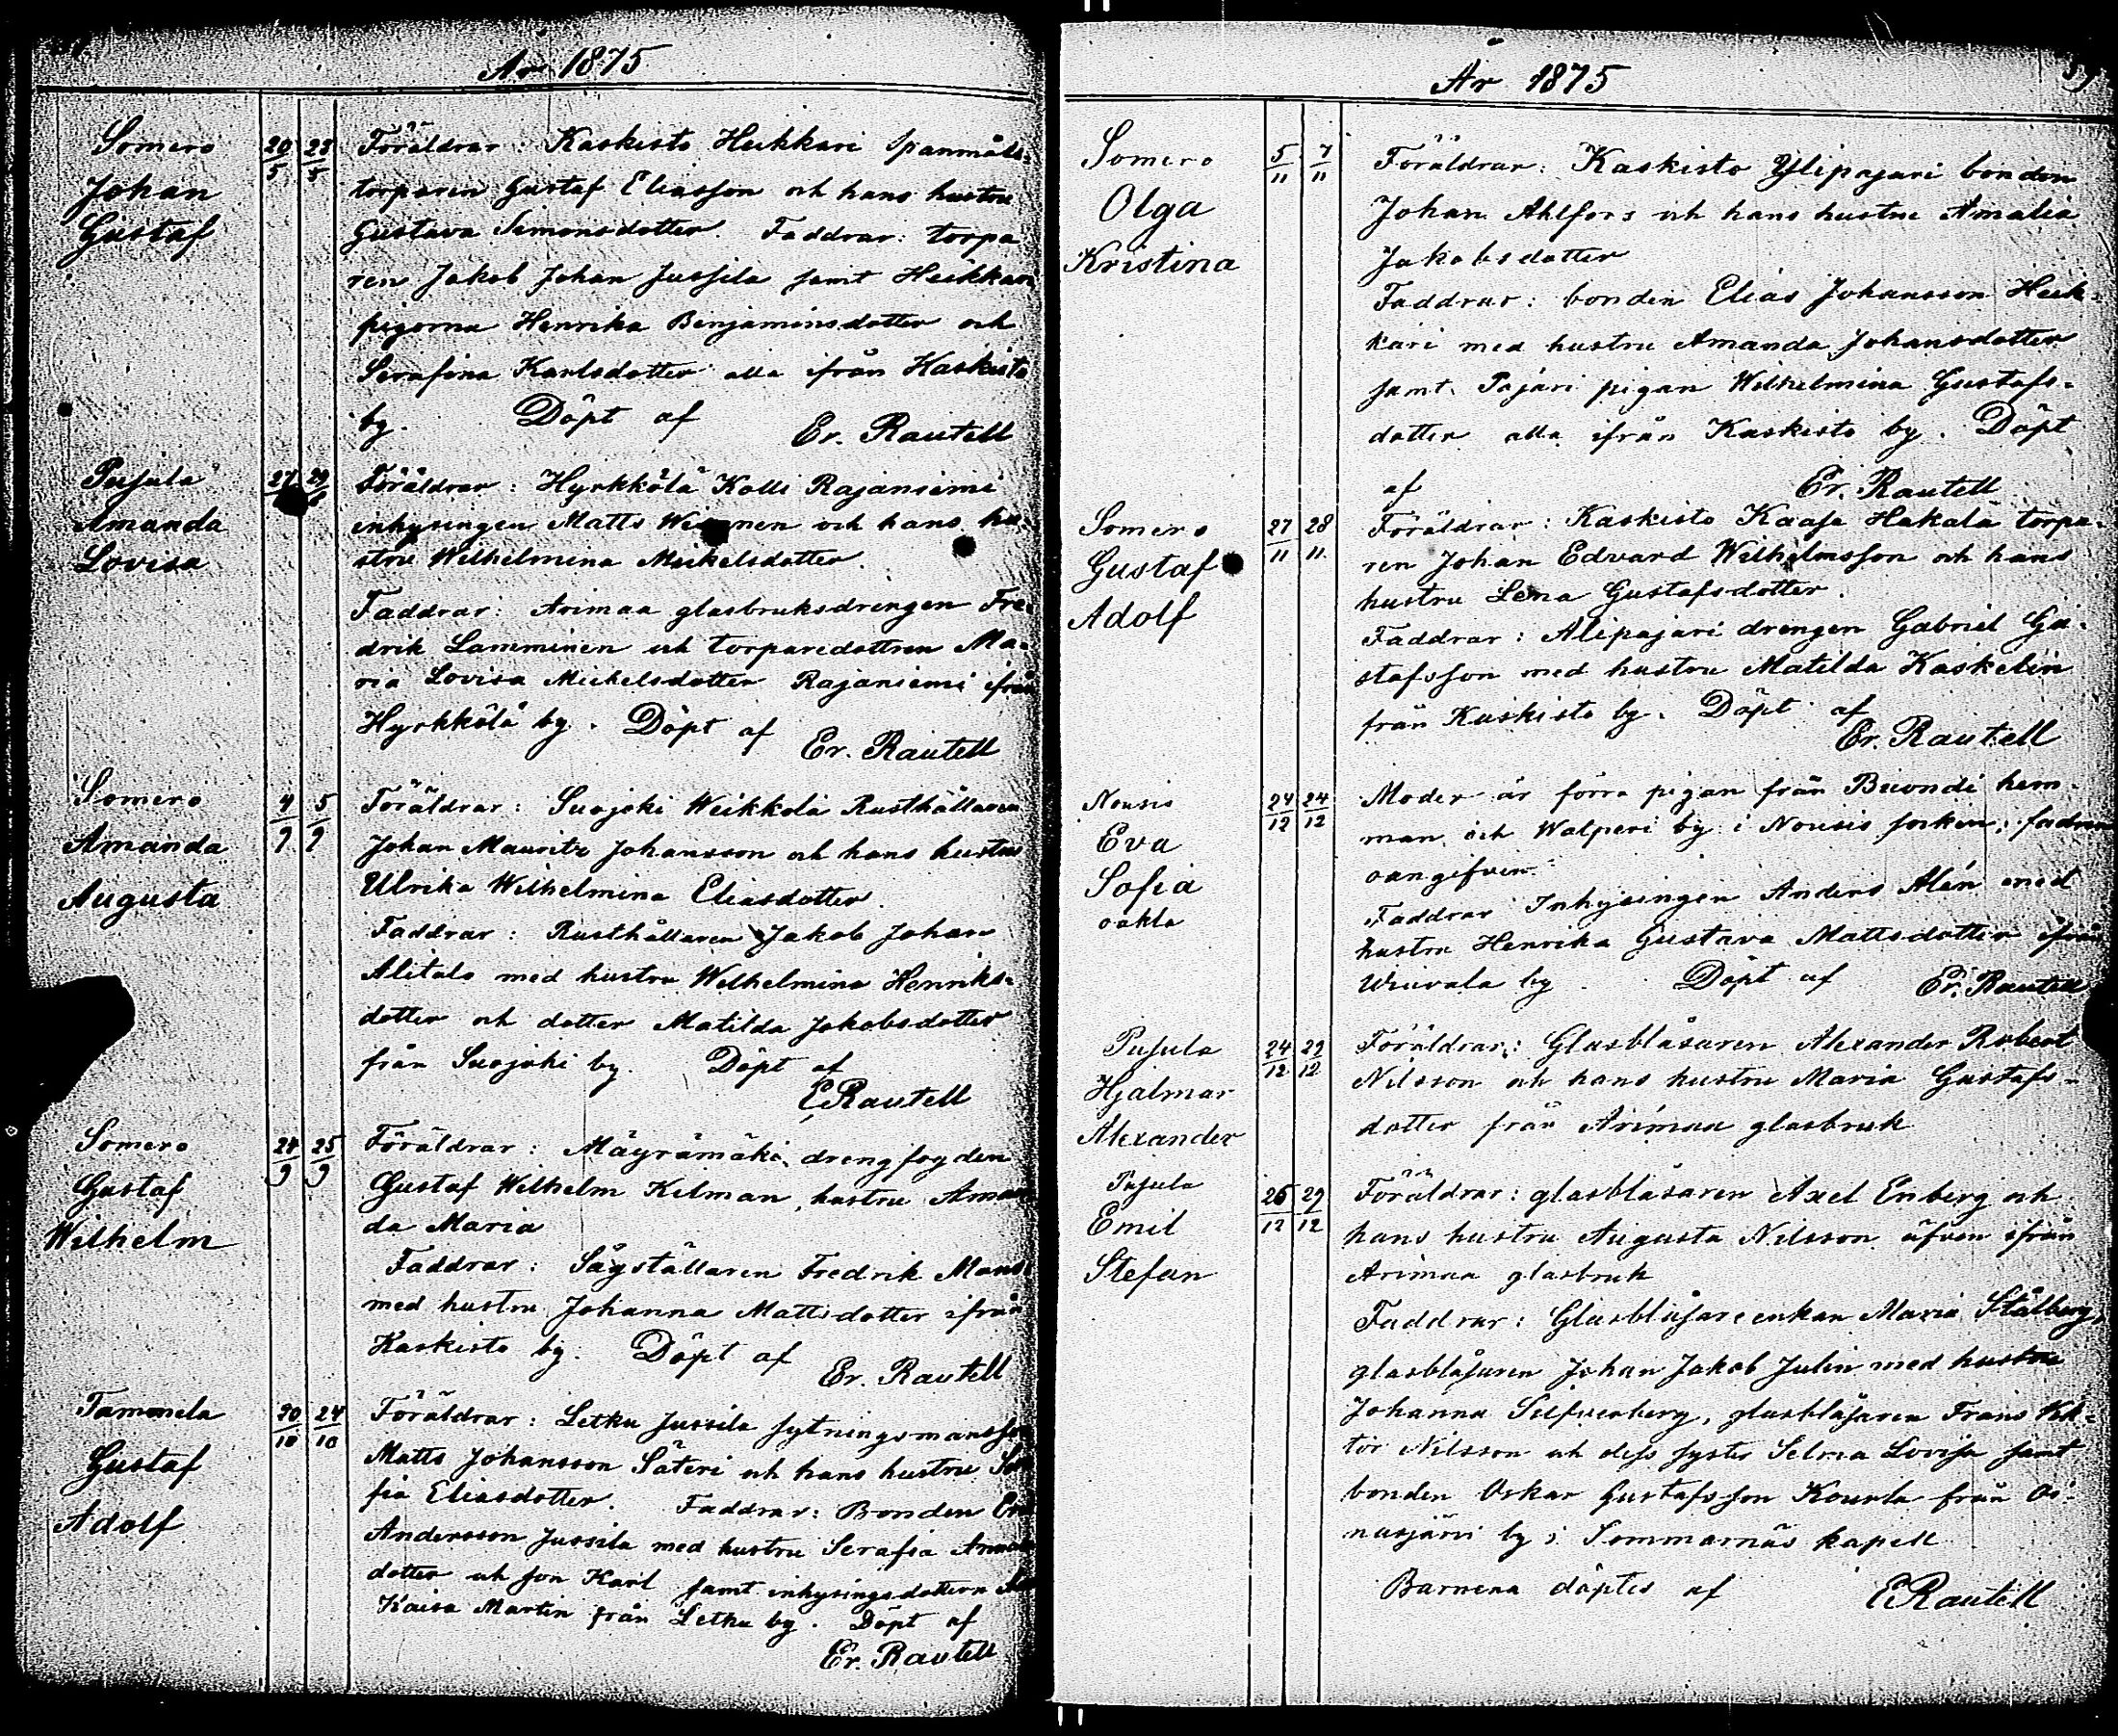 År 1875
Somero 20/5 23/5 Föräldrar: Kaskisto Heikkari Spanmåls-
Johan torparen Gustaf Eliasson och hans hustru
Gustaf Gustava Simonsdotter. Faddrar: torpa
ren Jakob Johan Jussila samt Heikkari
pigorna Henrika Benjaminsdotter och
Serafina Karlsdotter alla ifrån Kaskisto
by. Döpt af
Er. Rautell
Pusula 27 29 Föräldrar: Hyrkkölä Kolli Rajaniemi
Amanda inhysingen Matts och hans hu-
Lovisa stru Wilhelmina Mickelsdotter.
Faddrar: Arimaa glasbruksdrengen Fre-
drik Lamminen och torparedottren Ma-
ria Lovisa Mickelsdotter Rajaniemi ifrån
Hyrkkölä by. Döpt af Er. Rautell
Somero 4/9 5/9 Föräldrar: Suojoki Weikkola Rusthållaren
Amanda Johan Mauritz Johansson och hans hustru
Augusta Ulrika Wilhelmina Eliasdotter.
Faddrar: Rusthållaren Jakob Johan
Alitalo med hustru Wilhelmina Henriks-
dotter och dotter Matilda Jakobsdotter
från Suojoki by. Döpt af
E Rautell
Somero 24/9 25/9 Föräldrar: Mäyrämäki drengfogden
Gustaf Gustaf Wilhelm Kilman, hustru Aman
Wilhelm da Maria
Faddrar: Sågställaren Fredrik
med hustru Johanna Mattsdotter ifrån
Kaskisto by. Döpt af
Er. Rautell
Tammela 20/10 24/10 Föräldrar: Letku Jussila sytningsmansson
Gustaf Matts Johansson Säteri och hans hustru So
Adolf fia Eliasdotter. Faddrar: Bonden
Andersson Jussila med hustru Serafia
dotter och son Karl samt inhysingsdottern
Kaisa Martin från Letku by. Döpt af
Er. Rautell
År 1875
Somero 5/11 7/11 Föräldrar: Kaskisto Ylipajari bonden
Olga Johan Ahlfors och hans hustru Amalia
Kristina Jakobsdotter
Faddrar: bonden Elias Johansson Heik-
kari med hustru Amanda Johansdotter
samt Pajari pigan Wilhelmina Gustafs-
dotter alla ifrån Kaskisto by. Döpt
af Er. Rautell
Somero 27/11 28/11 Föräldrar: Kaskisto Kaasa Hakala torpa-
Gustaf ren Johan Edvard Wilhelmsson och hans
Adolf hustru Lena Gustafsdotter.
Faddrar: Alipajari drengen Gabriel Gu-
stafsson med hustru Matilda Kaskelin
från Kaskisto by. Döpt af
Er. Rautell
Nousis 24/12 24/12 Moder är förra pigan från hem-
Eva man och Walperi by i Nousis socken, fadren
Sofia oangifven.
oäkta Faddrar Inhysingen Anders Alén med
hustru Henrika Gustava Mattsdotter ifrån
by. Döpt af Er. Rautell
Pusula 24/12 29/12 Föräldrar: Glasblåsaren Alexander Robert
Hjalmar Nilsson och hans hustru Maria Gustafs-
Alexander dotter från Arimaa glasbruk
Pusula 26/12 29/12 Föräldrar: glasblåsaren Axel Enberg och
Emil hans hustru Augusta Nilsson äfven ifrån
Stefan Arimaa glasbruk
Faddrar: Glasblåsareenkan Maria Stålberg,
glasblåsaren Johan Jakob Julin med hustru
Johanna Silfverberg, glasblåsaren Frans Vik-
tor Nilsson och dess syster Selma Lovisa samt
bonden Oskar Gustafsson Kourla från Oi-
nasjärvi by i Sommarnäs kapell
Barnena döptes af E Rautell